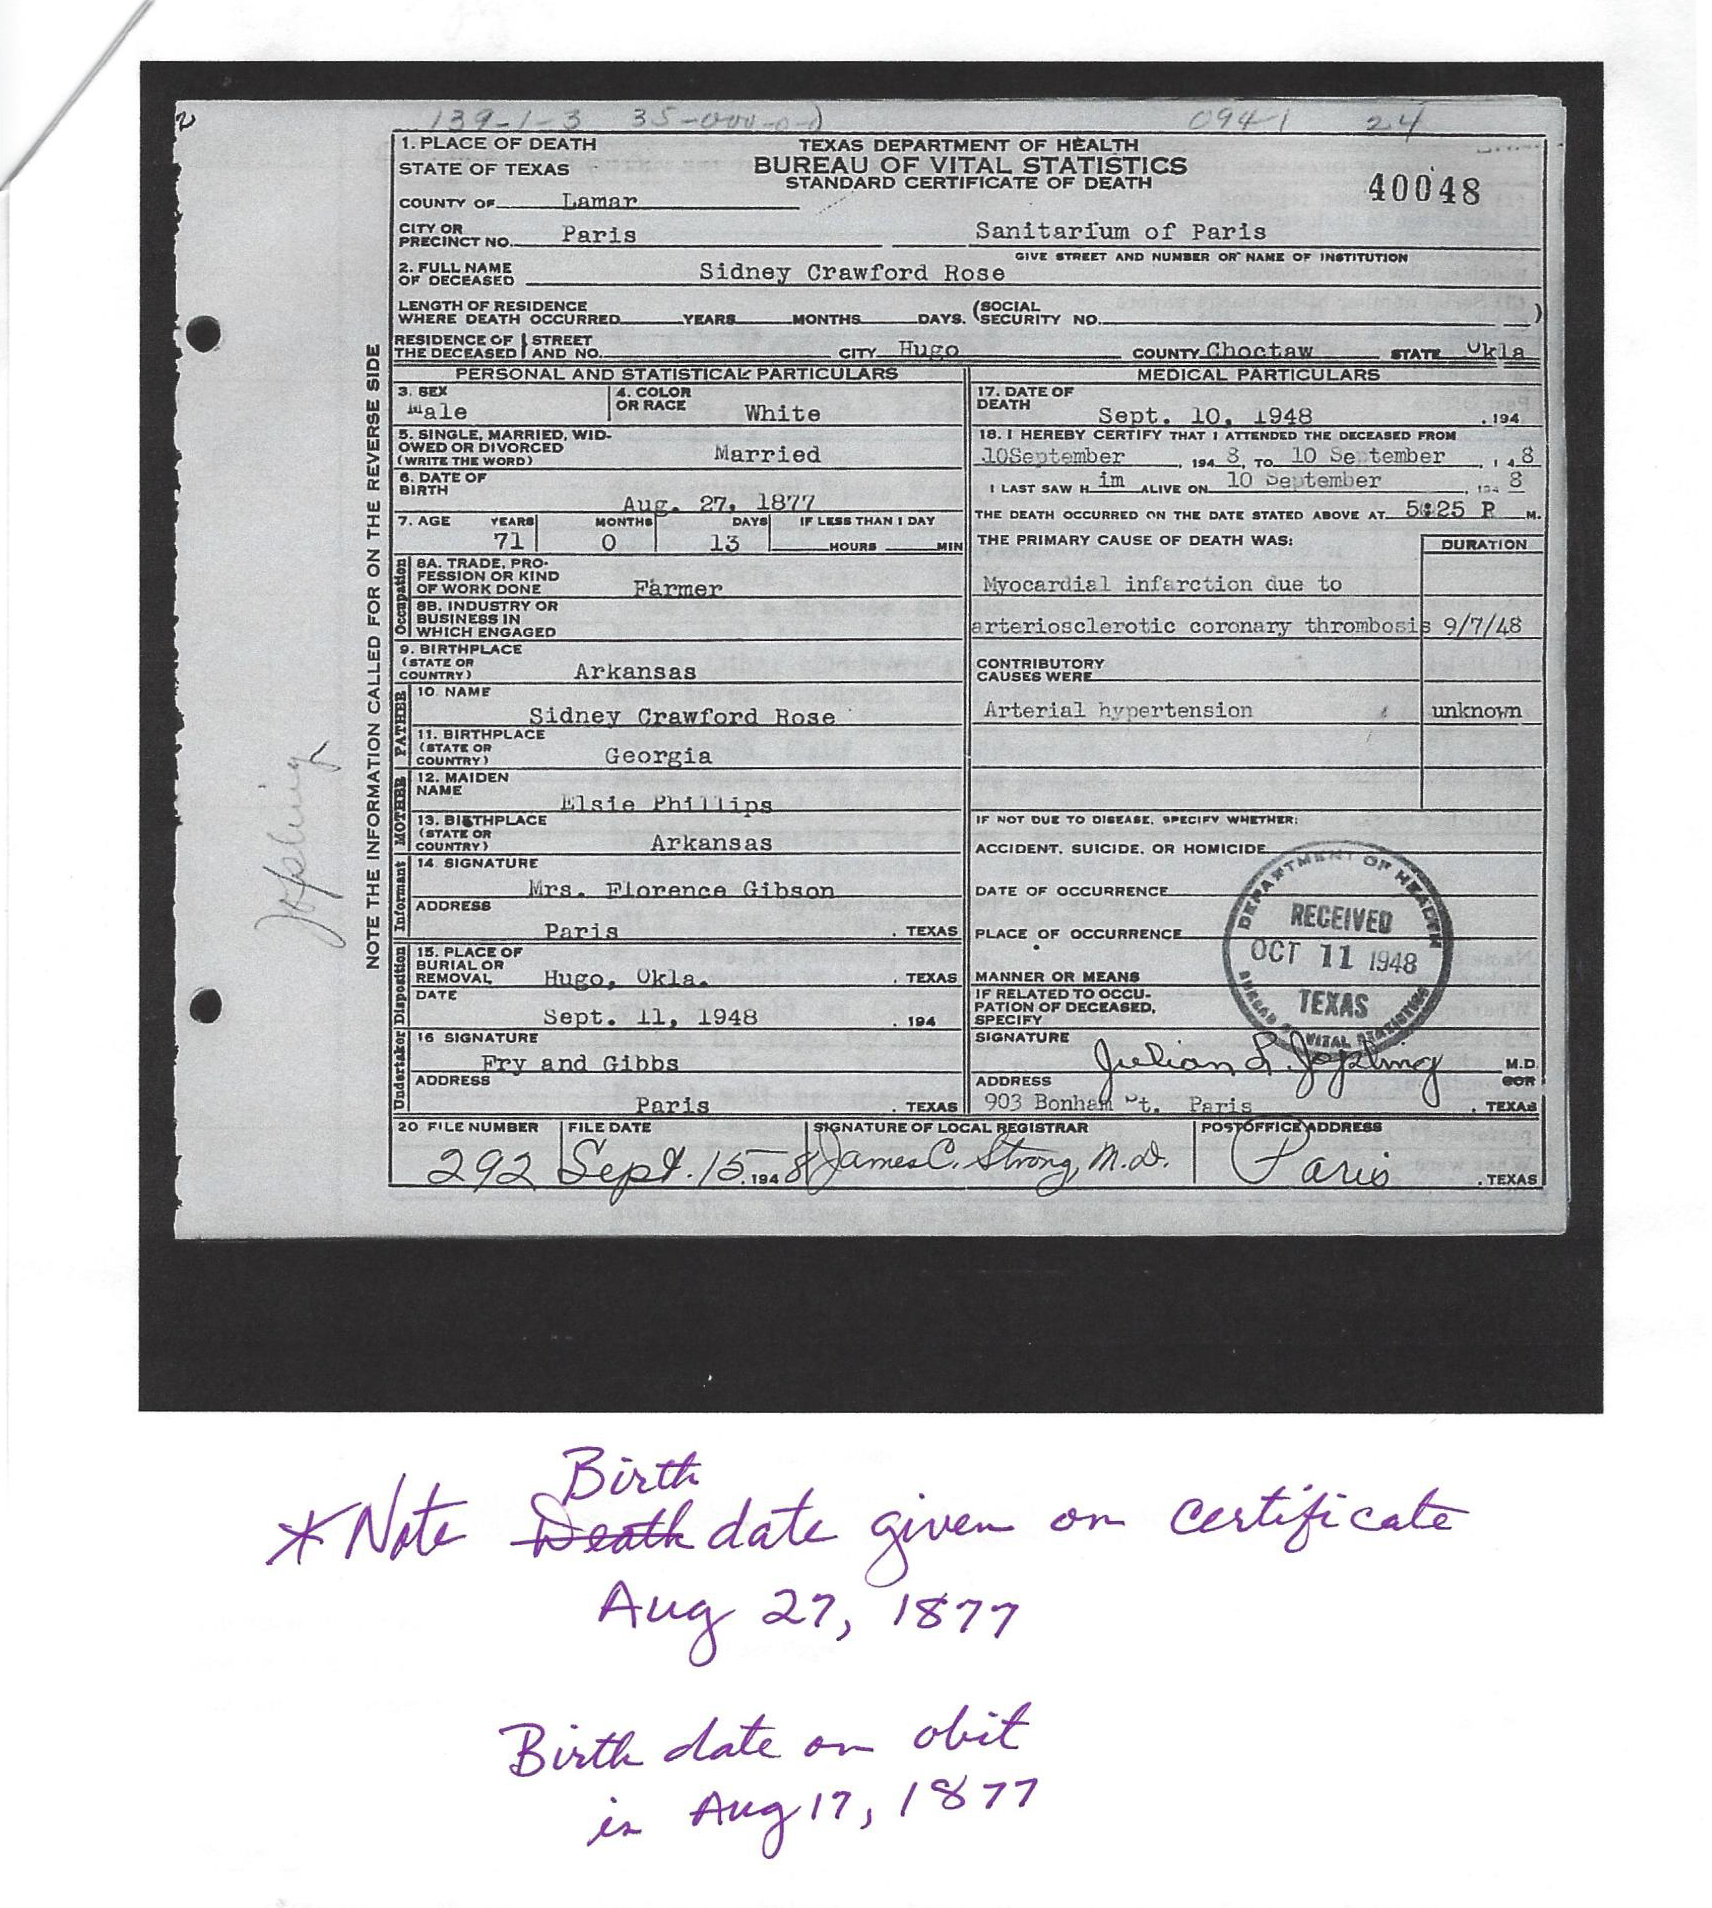 139-1-3 35-000-0-0 094-1 24
1. PLACE OF DEATH
STATE OF TEXAS
TEXAS DEPARTMENT OF HEALTH
BUREAU OF VITAL STATISTICS
STANDARD CERTIFICATE OF DEATH
40048
COUNTY OF Lamar
CITY OR
PRECINCT NO. Paris Sanitarium of Paris
GIVE STREET AND NUMBER OR NAME OF INSTITUTION
2. FULL NAME
OF DECEASED Sidney Crawford Rose
LENGTH OF RESIDENCE
WHERE DEATH OCCURRED YEARS MONTHS DAYS. (SOCIAL
SECURITY NO. )
RESIDENCE OF STREET
THE DECEASED AND NO. CITY Hugo COUNTY Choctaw STATE Okla
NOTE THE INFORMATION CALLED FOR ON THE REVERSE SIDE
Jopling
PERSONAL AND STATISTICAL PARTICULARS
3. SEX
Male
4. COLOR
OR RACE White
5. SINGLE, MARRIED, WID-
OWED OR DIVORCED
(WRITE THE WORD) Married
6. DATE OF
BIRTH Aug. 27, 1877
7. AGE YEARS MONTHS DAYS IF LESS THAN 1 DAY
71 0 13 HOURS MIN
Occupation
8A. TRADE, PRO-
FESSION OR KIND
OF WORK DONE Farmer
8B. INDUSTRY OR
BUSINESS IN
WHICH ENGAGED
9. BIRTHPLACE
(STATE OR
COUNTRY) Arkansas
FATHER
10. NAME
Sidney Crawford Rose
11. BIRTHPLACE
(STATE OR
COUNTRY) Georgia
MOTHER
12. MAIDEN
NAME Elsie Phillips
13. BIRTHPLACE
(STATE OR
COUNTRY) Arkansas
Informant
14. SIGNATURE
Mrs. Florence Gibson
ADDRESS
Paris , TEXAS
Disposition
15. PLACE OF
BURIAL OR
REMOVAL Hugo, Okla. , TEXAS
DATE
Sept. 11, 1948 , 194
Undertaker
16 SIGNATURE
Fry and Gibbs
ADDRESS
Paris , TEXAS
MEDICAL PARTICULARS
17. DATE OF
DEATH Sept. 10, 1948 , 194
18. I HEREBY CERTIFY THAT I ATTENDED THE DECEASED FROM
10September , 194 8, TO 10 September , 194 8
I LAST SAW H im ALIVE ON 10 September , 194 8
THE DEATH OCCURRED ON THE DATE STATED ABOVE AT 5:25 P M.
THE PRIMARY CAUSE OF DEATH WAS: DURATION
Myocardial infarction due to
arteriosclerotic coronary thrombosis 9/7/48
CONTRIBUTORY
CAUSES WERE
Arterial hypertension unknown
IF NOT DUE TO DISEASE, SPECIFY WHETHER:
ACCIDENT, SUICIDE, OR HOMICIDE
DATE OF OCCURRENCE
PLACE OF OCCURRENCE
MANNER OR MEANS
IF RELATED TO OCCU-
PATION OF DECEASED,
SPECIFY
DEPARTMENT OF HEALTH
RECEIVED
OCT 11 1948
TEXAS
BUREAU OF VITAL STATISTICS
SIGNATURE Julian L. Jopling M.D.
ADDRESS
903 Bonham St. Paris , TEXAS
20 FILE NUMBER FILE DATE SIGNATURE OF LOCAL REGISTRAR POSTOFFICE ADDRESS
292 Sept. 15, 194 8 James C. Strong, M.D. Paris , TEXAS
Birth
*Note Death date given on certificate
Aug 27, 1877
Birth date on obit
is Aug 17, 1877